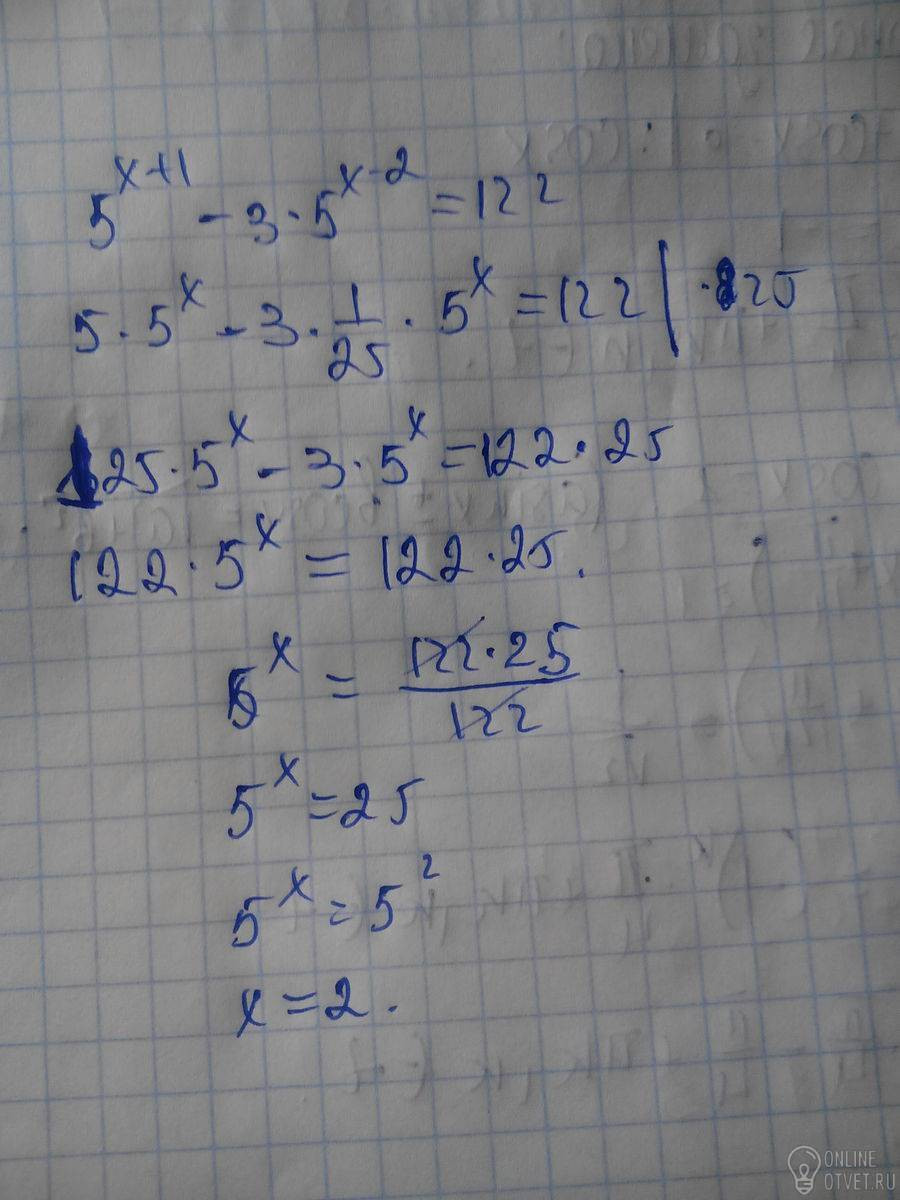 5^{x+1} - 3·5^{x-2} = 122
5·5^x - 3·\frac{1}{25}·5^x = 122 | ·25
125·5^x - 3·5^x = 122·25
122·5^x = 122·25.
5^x = \frac{122·25}{122}
5^x = 25
5^x = 5^2
x = 2.
ONLINE
OTVET.RU